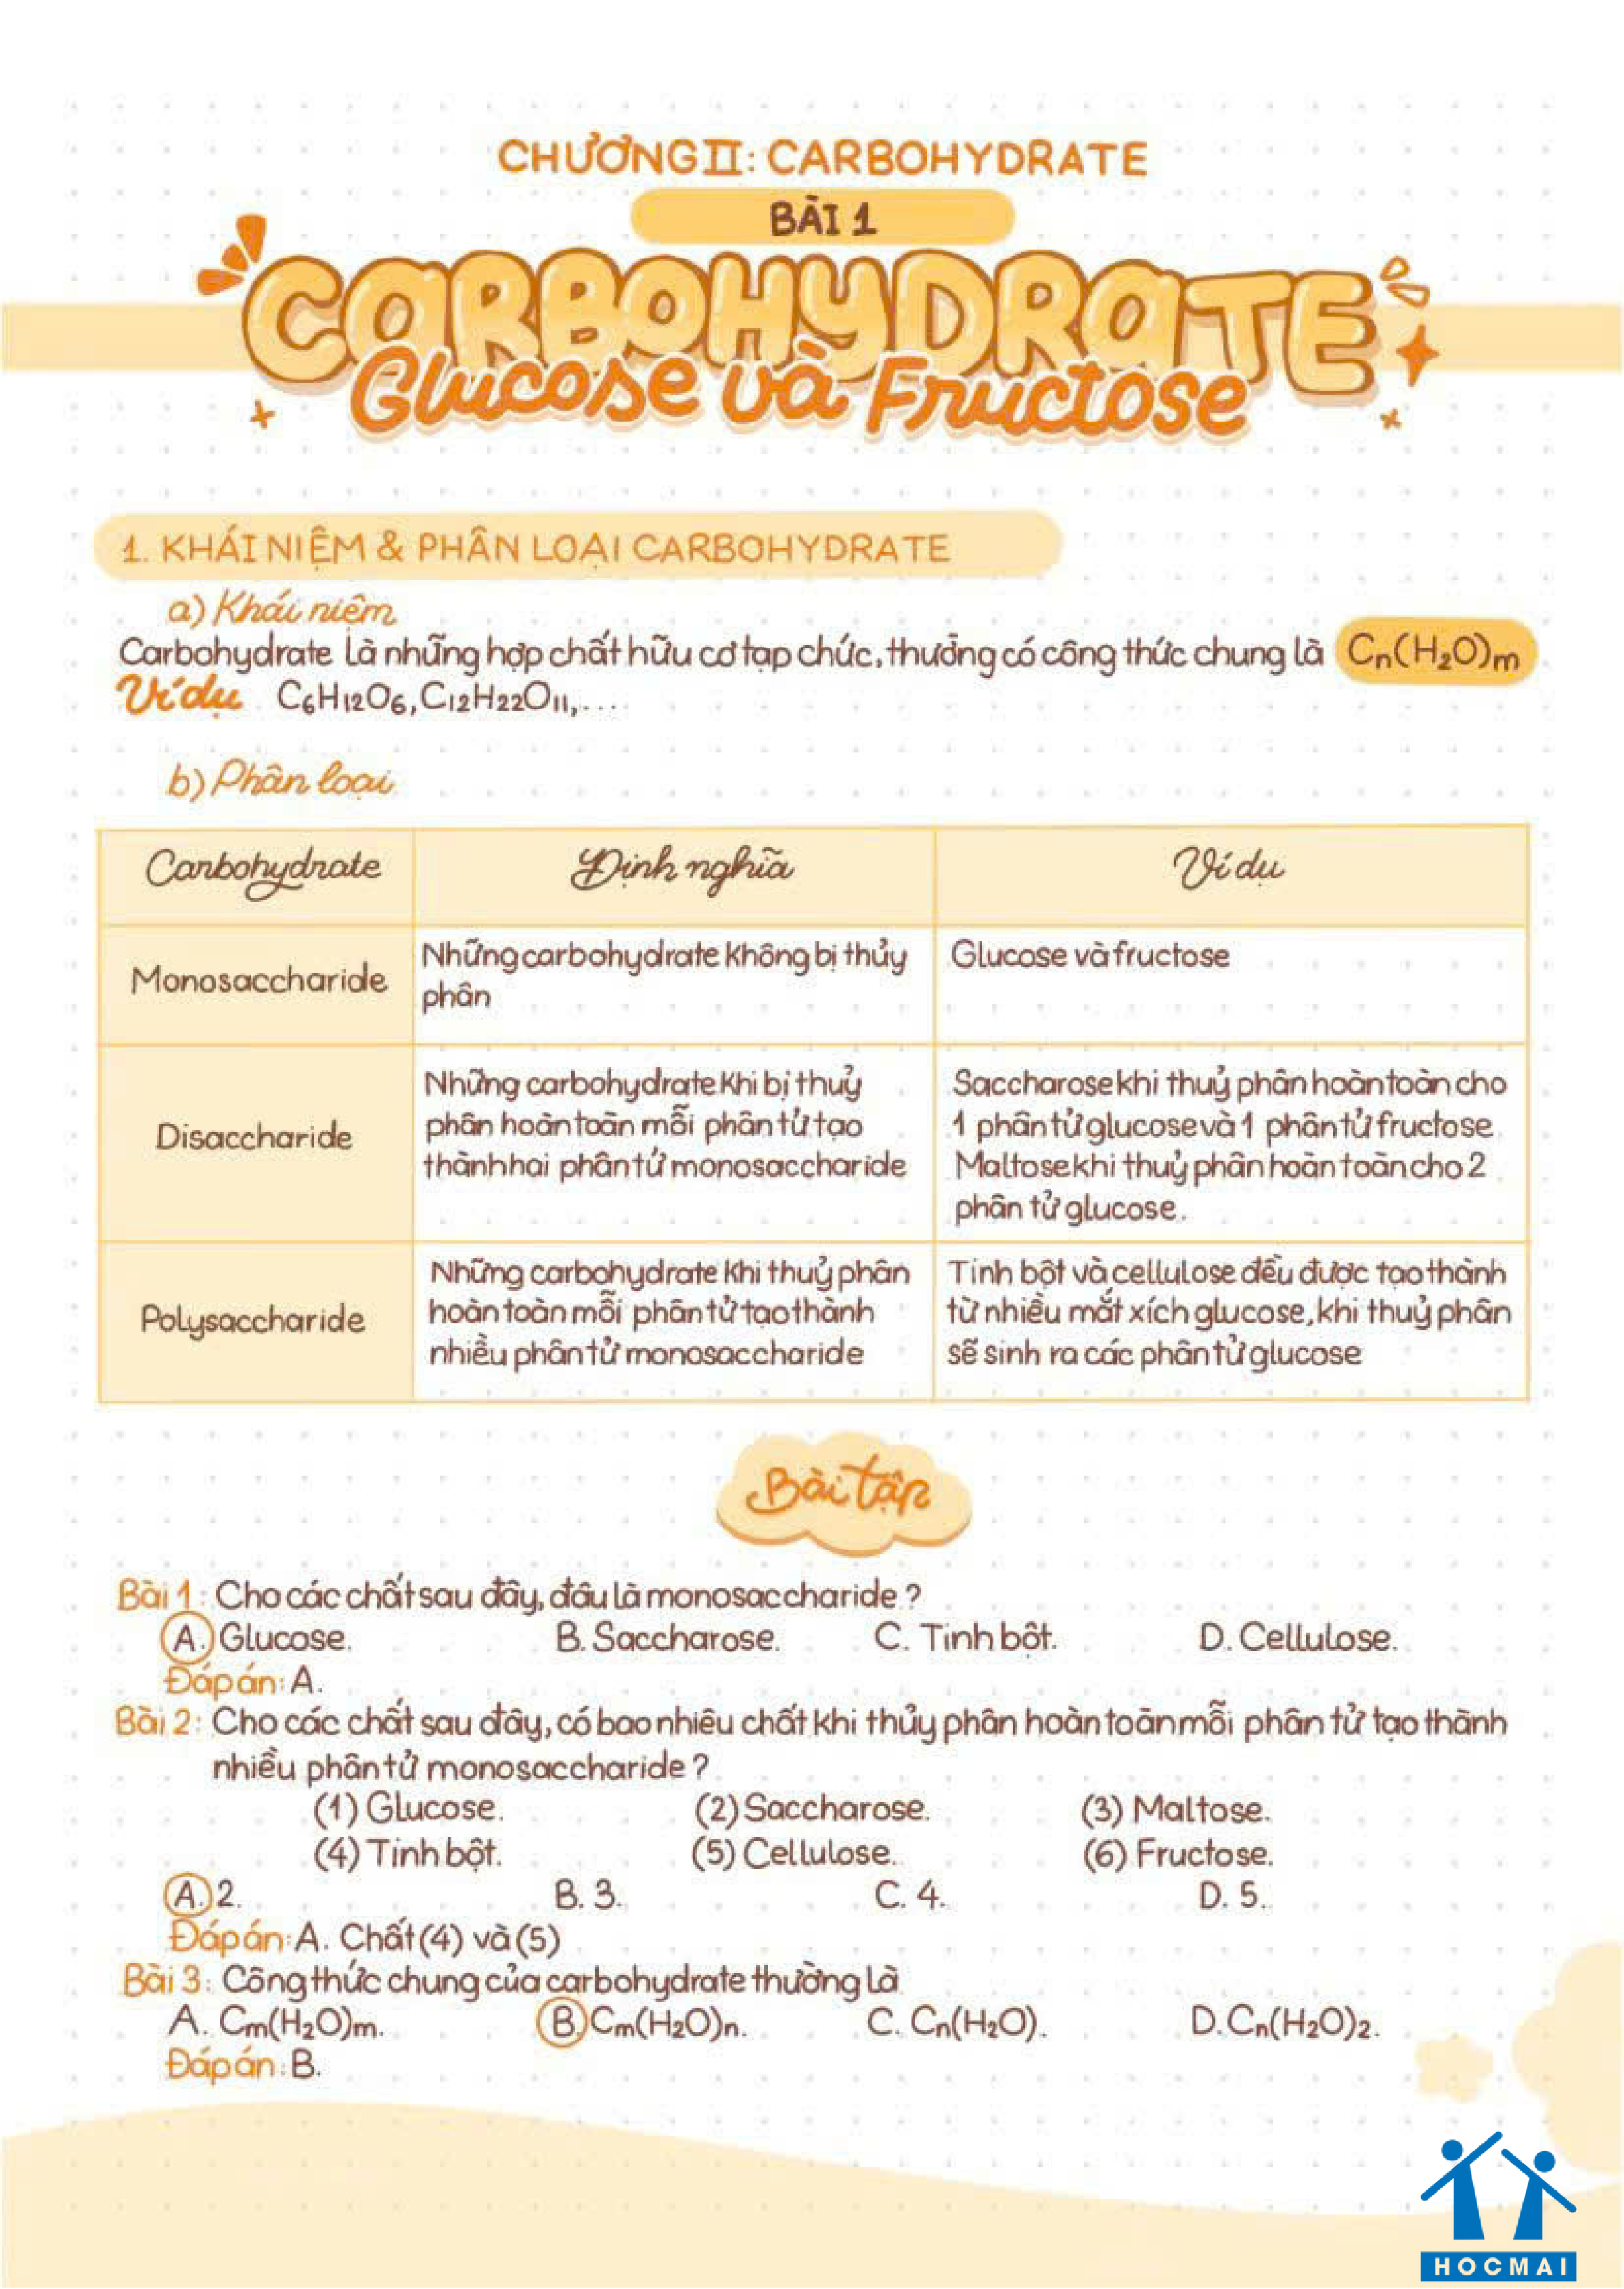 CHƯƠNG II: CARBOHYDRATE
BÀI 1
CARBOHYDRATE
Glucose và Fructose
1. KHÁI NIỆM & PHÂN LOẠI CARBOHYDRATE
a) Khái niệm
Carbohydrate là những hợp chất hữu cơ tạp chức, thường có công thức chung là Cn(H₂O)m
Ví dụ C₆H₁₂O₆, C₁₂H₂₂O₁₁,...
b) Phân loại
Carbohydrate Định nghĩa Ví dụ
Monosaccharide
Những carbohydrate không bị thủy
phân
Glucose và fructose
Disaccharide
Những carbohydrate khi bị thuỷ
phân hoàn toàn mỗi phân tử tạo
thành hai phân tử monosaccharide
Saccharose khi thuỷ phân hoàn toàn cho
1 phân tử glucose và 1 phân tử fructose.
Maltose khi thuỷ phân hoàn toàn cho 2
phân tử glucose.
Polysaccharide
Những carbohydrate khi thuỷ phân
hoàn toàn mỗi phân tử tạo thành
nhiều phân tử monosaccharide
Tinh bột và cellulose đều được tạo thành
từ nhiều mắt xích glucose, khi thuỷ phân
sẽ sinh ra các phân tử glucose
Bài tập
Bài 1: Cho các chất sau đây, đâu là monosaccharide?
A. Glucose. B. Saccharose. C. Tinh bột. D. Cellulose.
Đáp án: A.
Bài 2: Cho các chất sau đây, có bao nhiêu chất khi thủy phân hoàn toàn mỗi phân tử tạo thành
nhiều phân tử monosaccharide?
(1) Glucose. (2) Saccharose. (3) Maltose.
(4) Tinh bột. (5) Cellulose. (6) Fructose.
A. 2. B. 3. C. 4. D. 5.
Đáp án: A. Chất (4) và (5)
Bài 3: Công thức chung của carbohydrate thường là
A. Cm(H₂O)m. B. Cm(H₂O)n. C. Cn(H₂O). D. Cn(H₂O)₂.
Đáp án: B.
HOCMAI